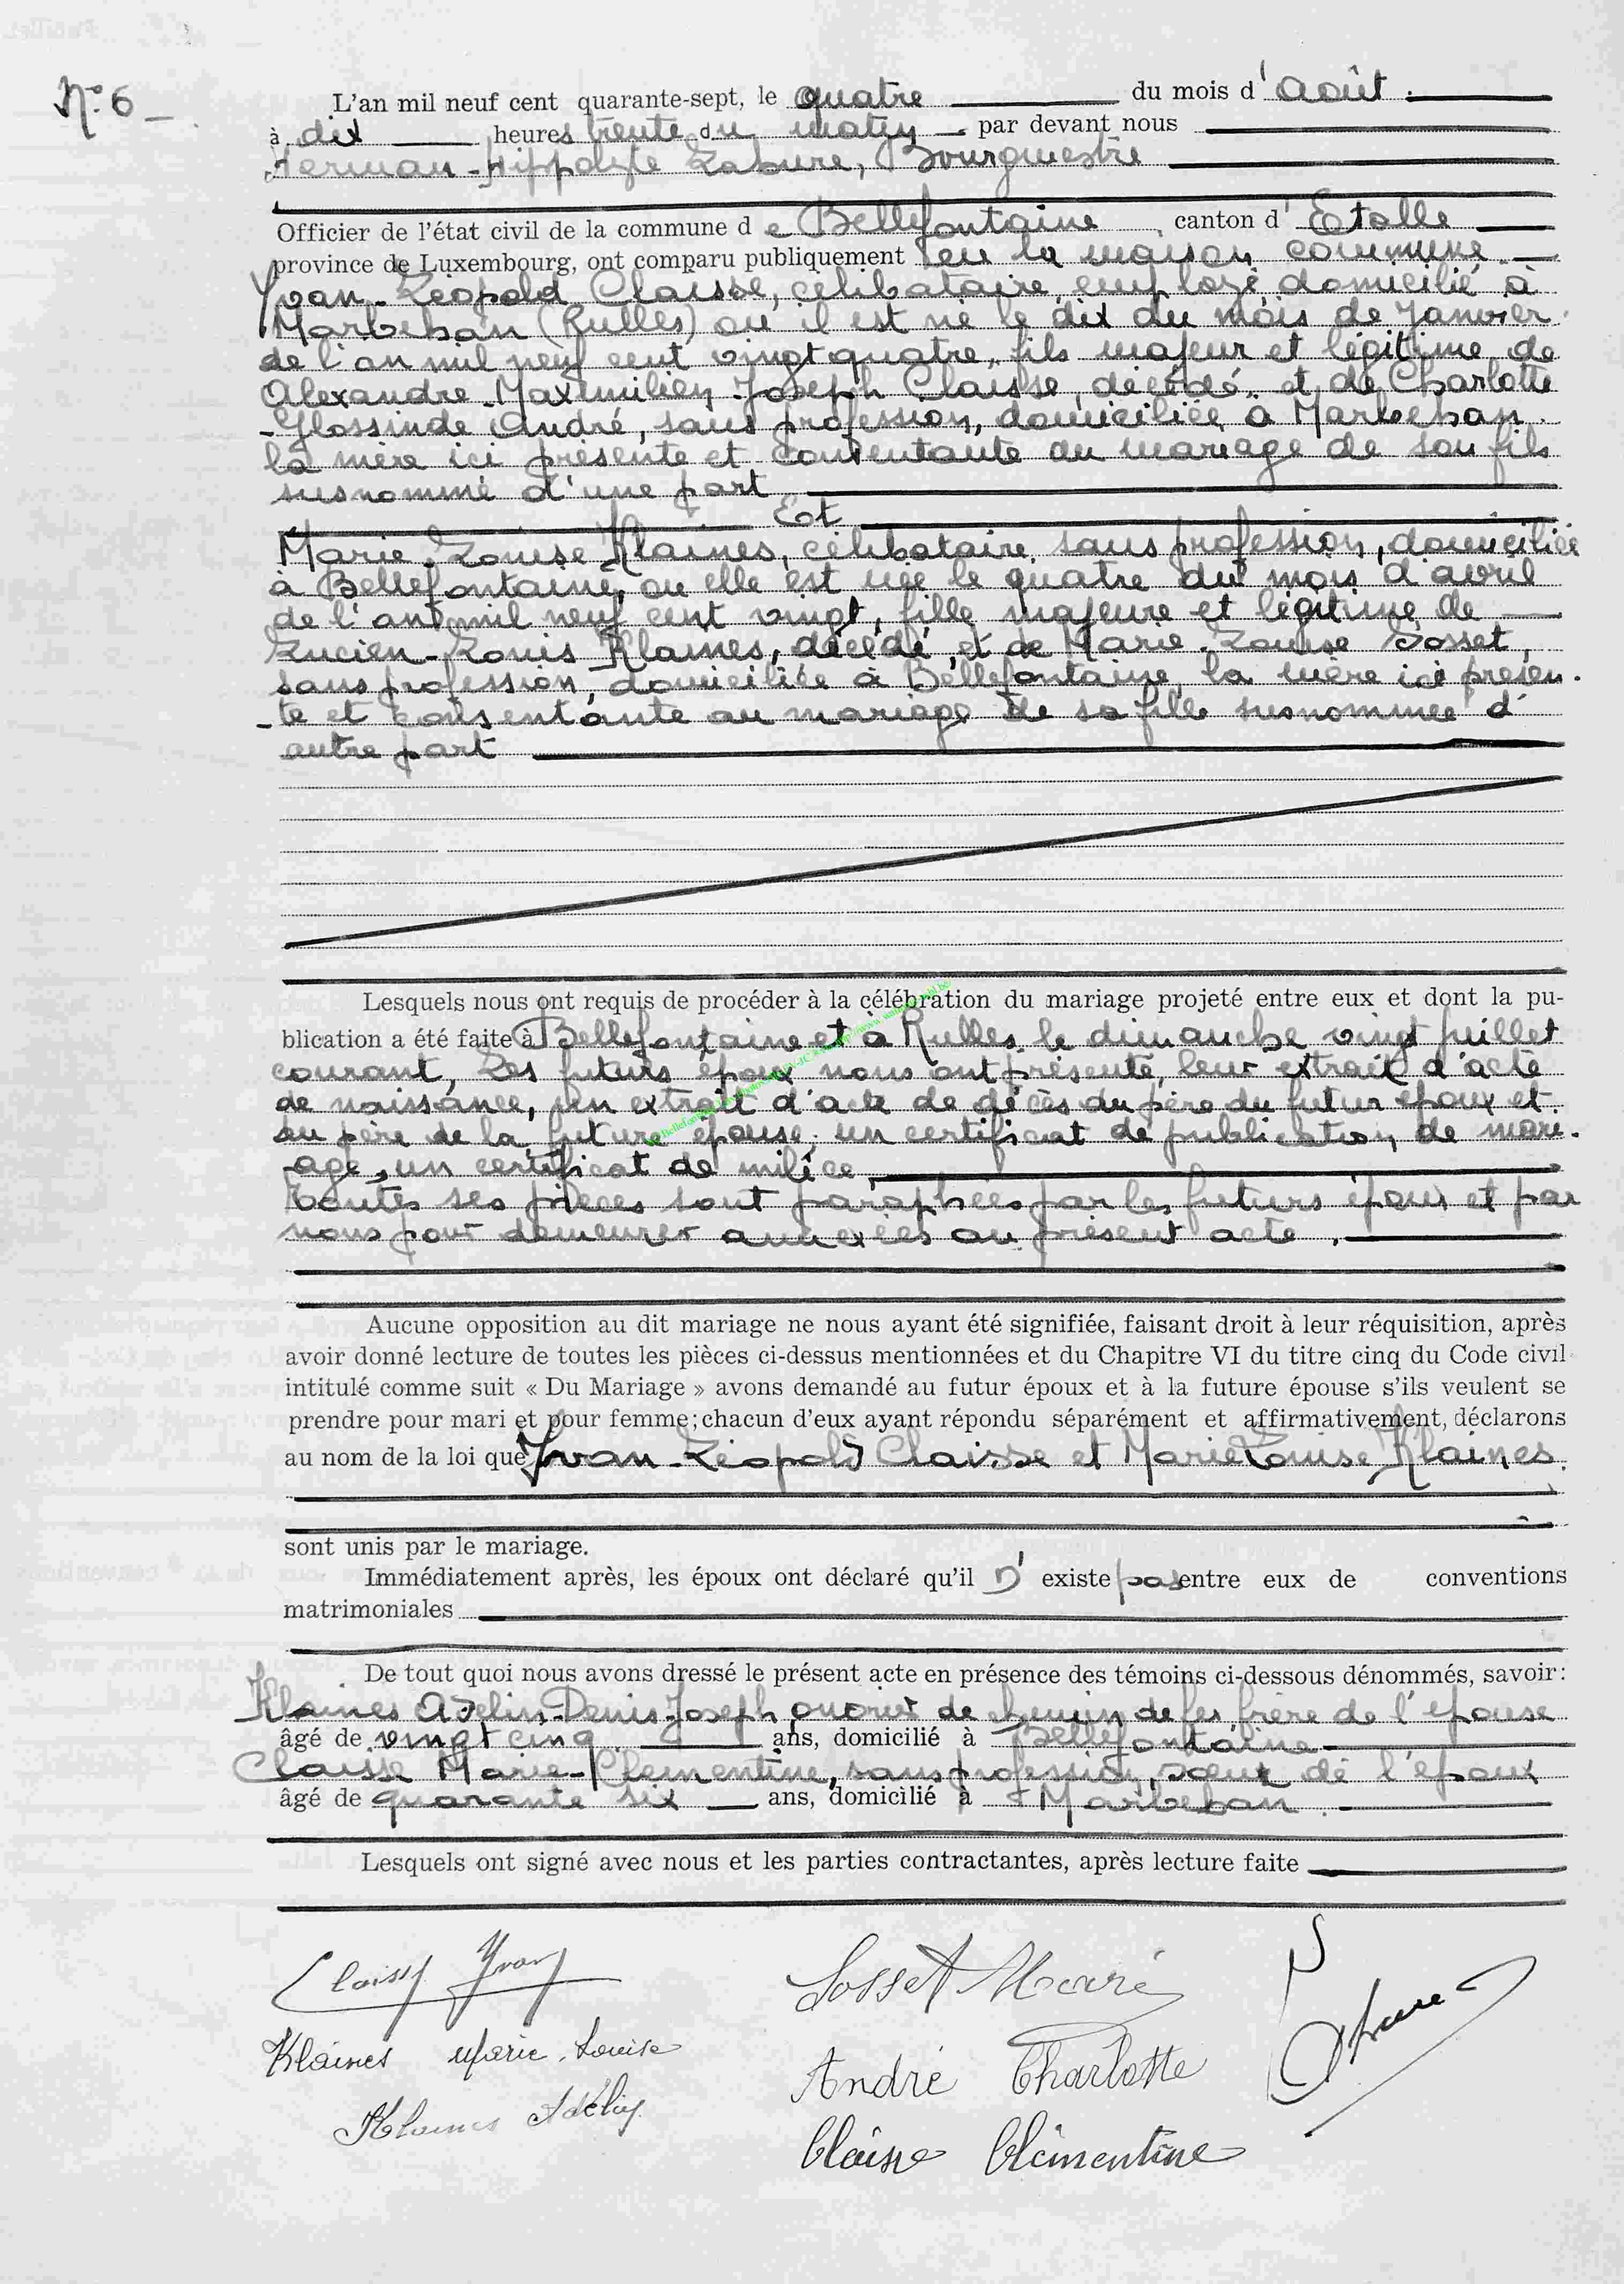 N° 6
L'an mil neuf cent quarante-sept, le quatre du mois d'Août
à dix heures trente du matin par devant nous
Herman-Hippolyte Labure, Bourgmestre
Officier de l'état civil de la commune de Bellefontaine, canton d'Etalle
province de Luxembourg, ont comparu publiquement en la maison commune
Yvan-Léopold Claisse, célibataire, employé, domicilié à
Marbehan (Rulles) où il est né le dix du mois de Janvier
de l'an mil neuf cent vingt quatre, fils majeur et légitime de
Alexandre-Maximilien-Joseph Claisse, décédé et de Charlotte
-Glossinde André, sans profession, domiciliée à Marbehan.
la mère ici présente et consentante au mariage de son fils
susnommé d'une part
Et
Marie-Louise Klaines, célibataire sans profession, domiciliée
à Bellefontaine, ou elle est née le quatre du mois d'avril
de l'an mil neuf cent vingt, fille majeure et légitime de
Lucien-Louis Klaines, décédé, et de Marie-Louise Sosset,
sans profession, domiciliée à Bellefontaine, la mère ici présen-
-te et consentante au mariage de sa fille susnommée d'
autre part
Lesquels nous ont requis de procéder à la célébration du mariage projeté entre eux et dont la pu-
blication a été faite à Bellefontaine et à Rulles le dimanche vingt juillet
courant, Les futurs époux nous ont présenté, leur extrait d'acte
de naissance, un extrait d'acte de décès du père du futur époux et
du père de la future épouse, un certificat de publication de mari-
-age, un certificat de milice,
toutes ses pièces sont paraphées par les futurs époux et par
nous pour demeurer annexées au présent acte.
Aucune opposition au dit mariage ne nous ayant été signifiée, faisant droit à leur réquisition, après
avoir donné lecture de toutes les pièces ci-dessus mentionnées et du Chapitre VI du titre cinq du Code civil
intitulé comme suit « Du Mariage » avons demandé au futur époux et à la future épouse s'ils veulent se
prendre pour mari et pour femme; chacun d'eux ayant répondu séparément et affirmativement, déclarons
au nom de la loi que Yvan-Léopold Claisse et Marie Louise Klaines.
sont unis par le mariage.
Immédiatement après, les époux ont déclaré qu'il n' existe pas entre eux de conventions
matrimoniales
De tout quoi nous avons dressé le présent acte en présence des témoins ci-dessous dénommés, savoir:
Klaines Adelin-Denis-Joseph ouvrier de chemin de fer, frère de l'épouse
âgé de vingt cinq ans, domicilié à Bellefontaine
Claisse Marie-Clementine, sans profession, sœur de l'époux
âgé de quarante six ans, domicilié à Marbehan
Lesquels ont signé avec nous et les parties contractantes, après lecture faite
Claisse Yvan
Sosset Marie
Klaines Marie-Louise
André Charlotte
Klaines Adelin
Claisse Clémentine